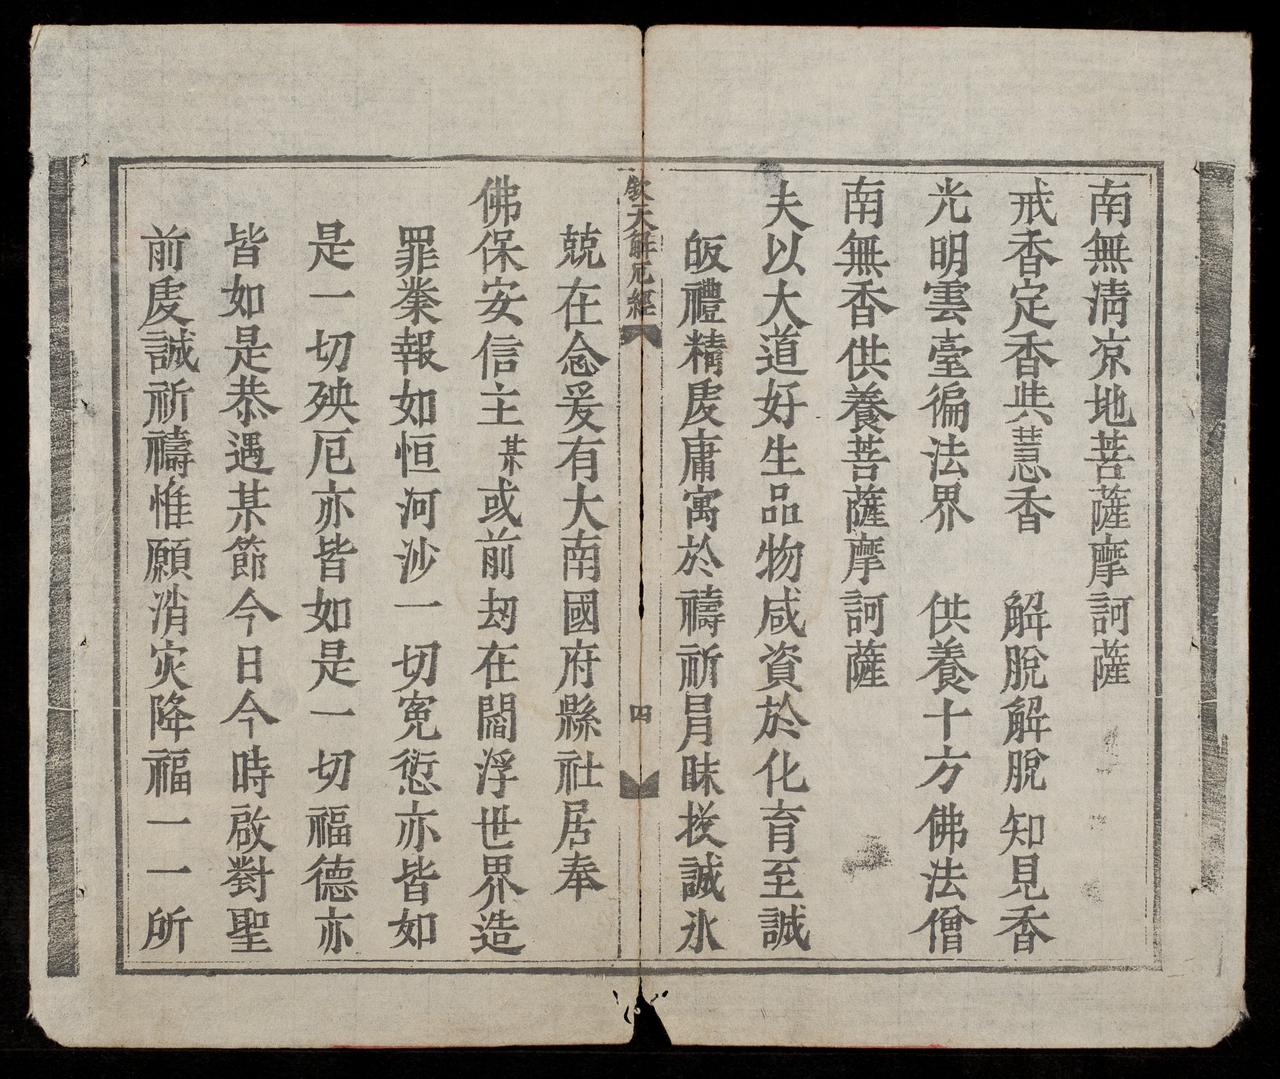 南無清凉地菩薩摩訶薩
戒香定香與慧香　解脫解脫知見香
光明雲臺徧法界　供養十方佛法僧
南無香供養菩薩摩訶薩
夫以大道好生品物咸資於化育至誠
皈禮精虔庸寓於禱祈冐昧投誠氷
欽天解厄經
四
兢在念爰有大南國府縣社居奉
佛保安信主某或前刼在閻浮世界造
罪業報如恒河沙一切寃愆亦皆如
是一切殃厄亦皆如是一切福德亦
皆如是恭遇某節今日今時啟對聖
前虔誠祈禱惟願消灾降福一一所